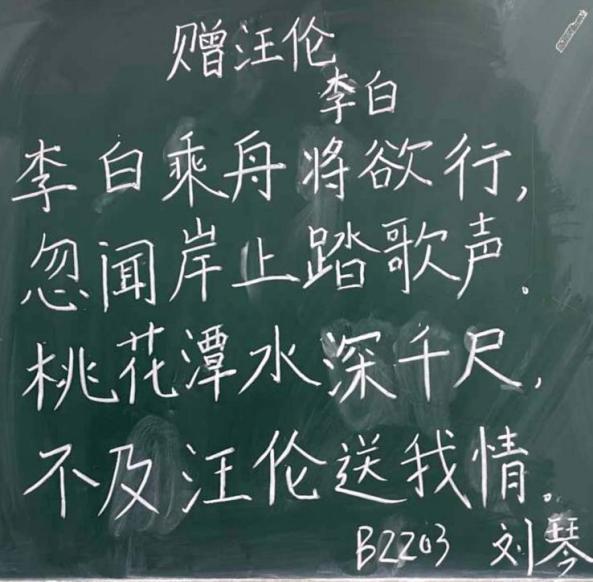 赠汪伦
李白
李白乘舟将欲行,
忽闻岸上踏歌声.
桃花潭水深千尺,
不及汪伦送我情。
B2203 刘琴